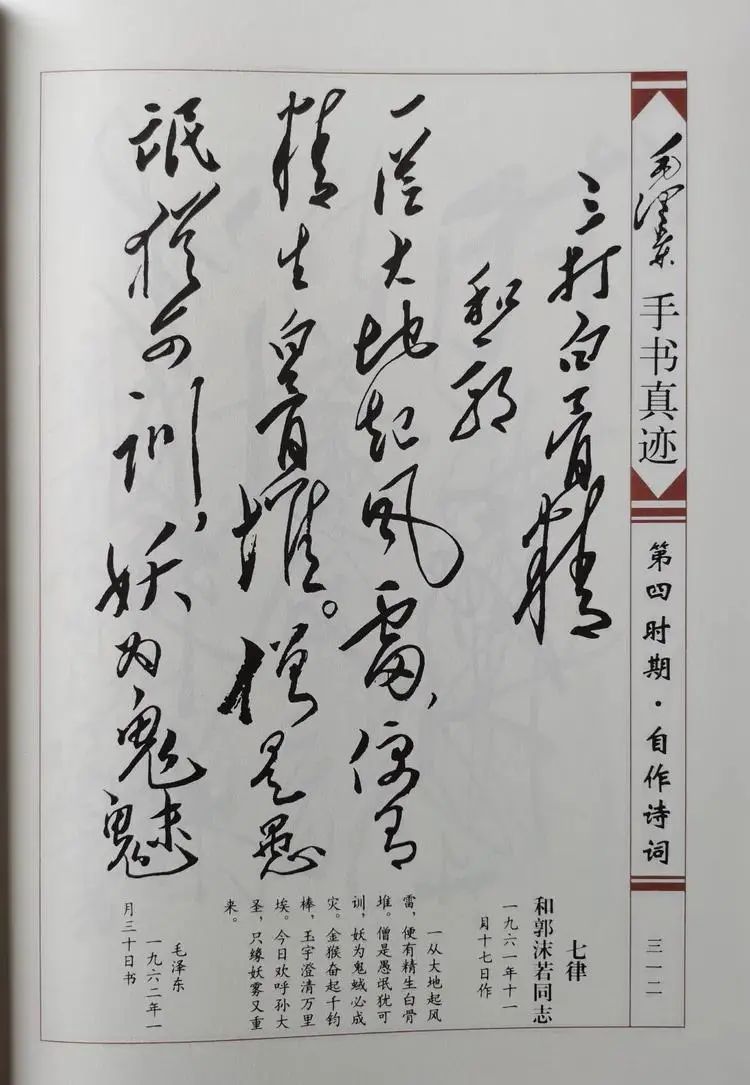 毛泽东
手书真迹
第四时期·自作诗词
三一二
三打白骨精
和郭
一從大地起风雷,便有
精生白骨堆。僧是愚
氓猶可訓,妖为鬼魅
七律
和郭沫若同志
一九六一年十一
月十七日作
一从大地起风
雷,便有精生白骨
堆。僧是愚氓犹可
训,妖为鬼蜮必成
灾。金猴奋起千钧
棒,玉宇澄清万里
埃。今日欢呼孙大
圣,只缘妖雾又重
来。
毛泽东
一九六二年一
月三十日书